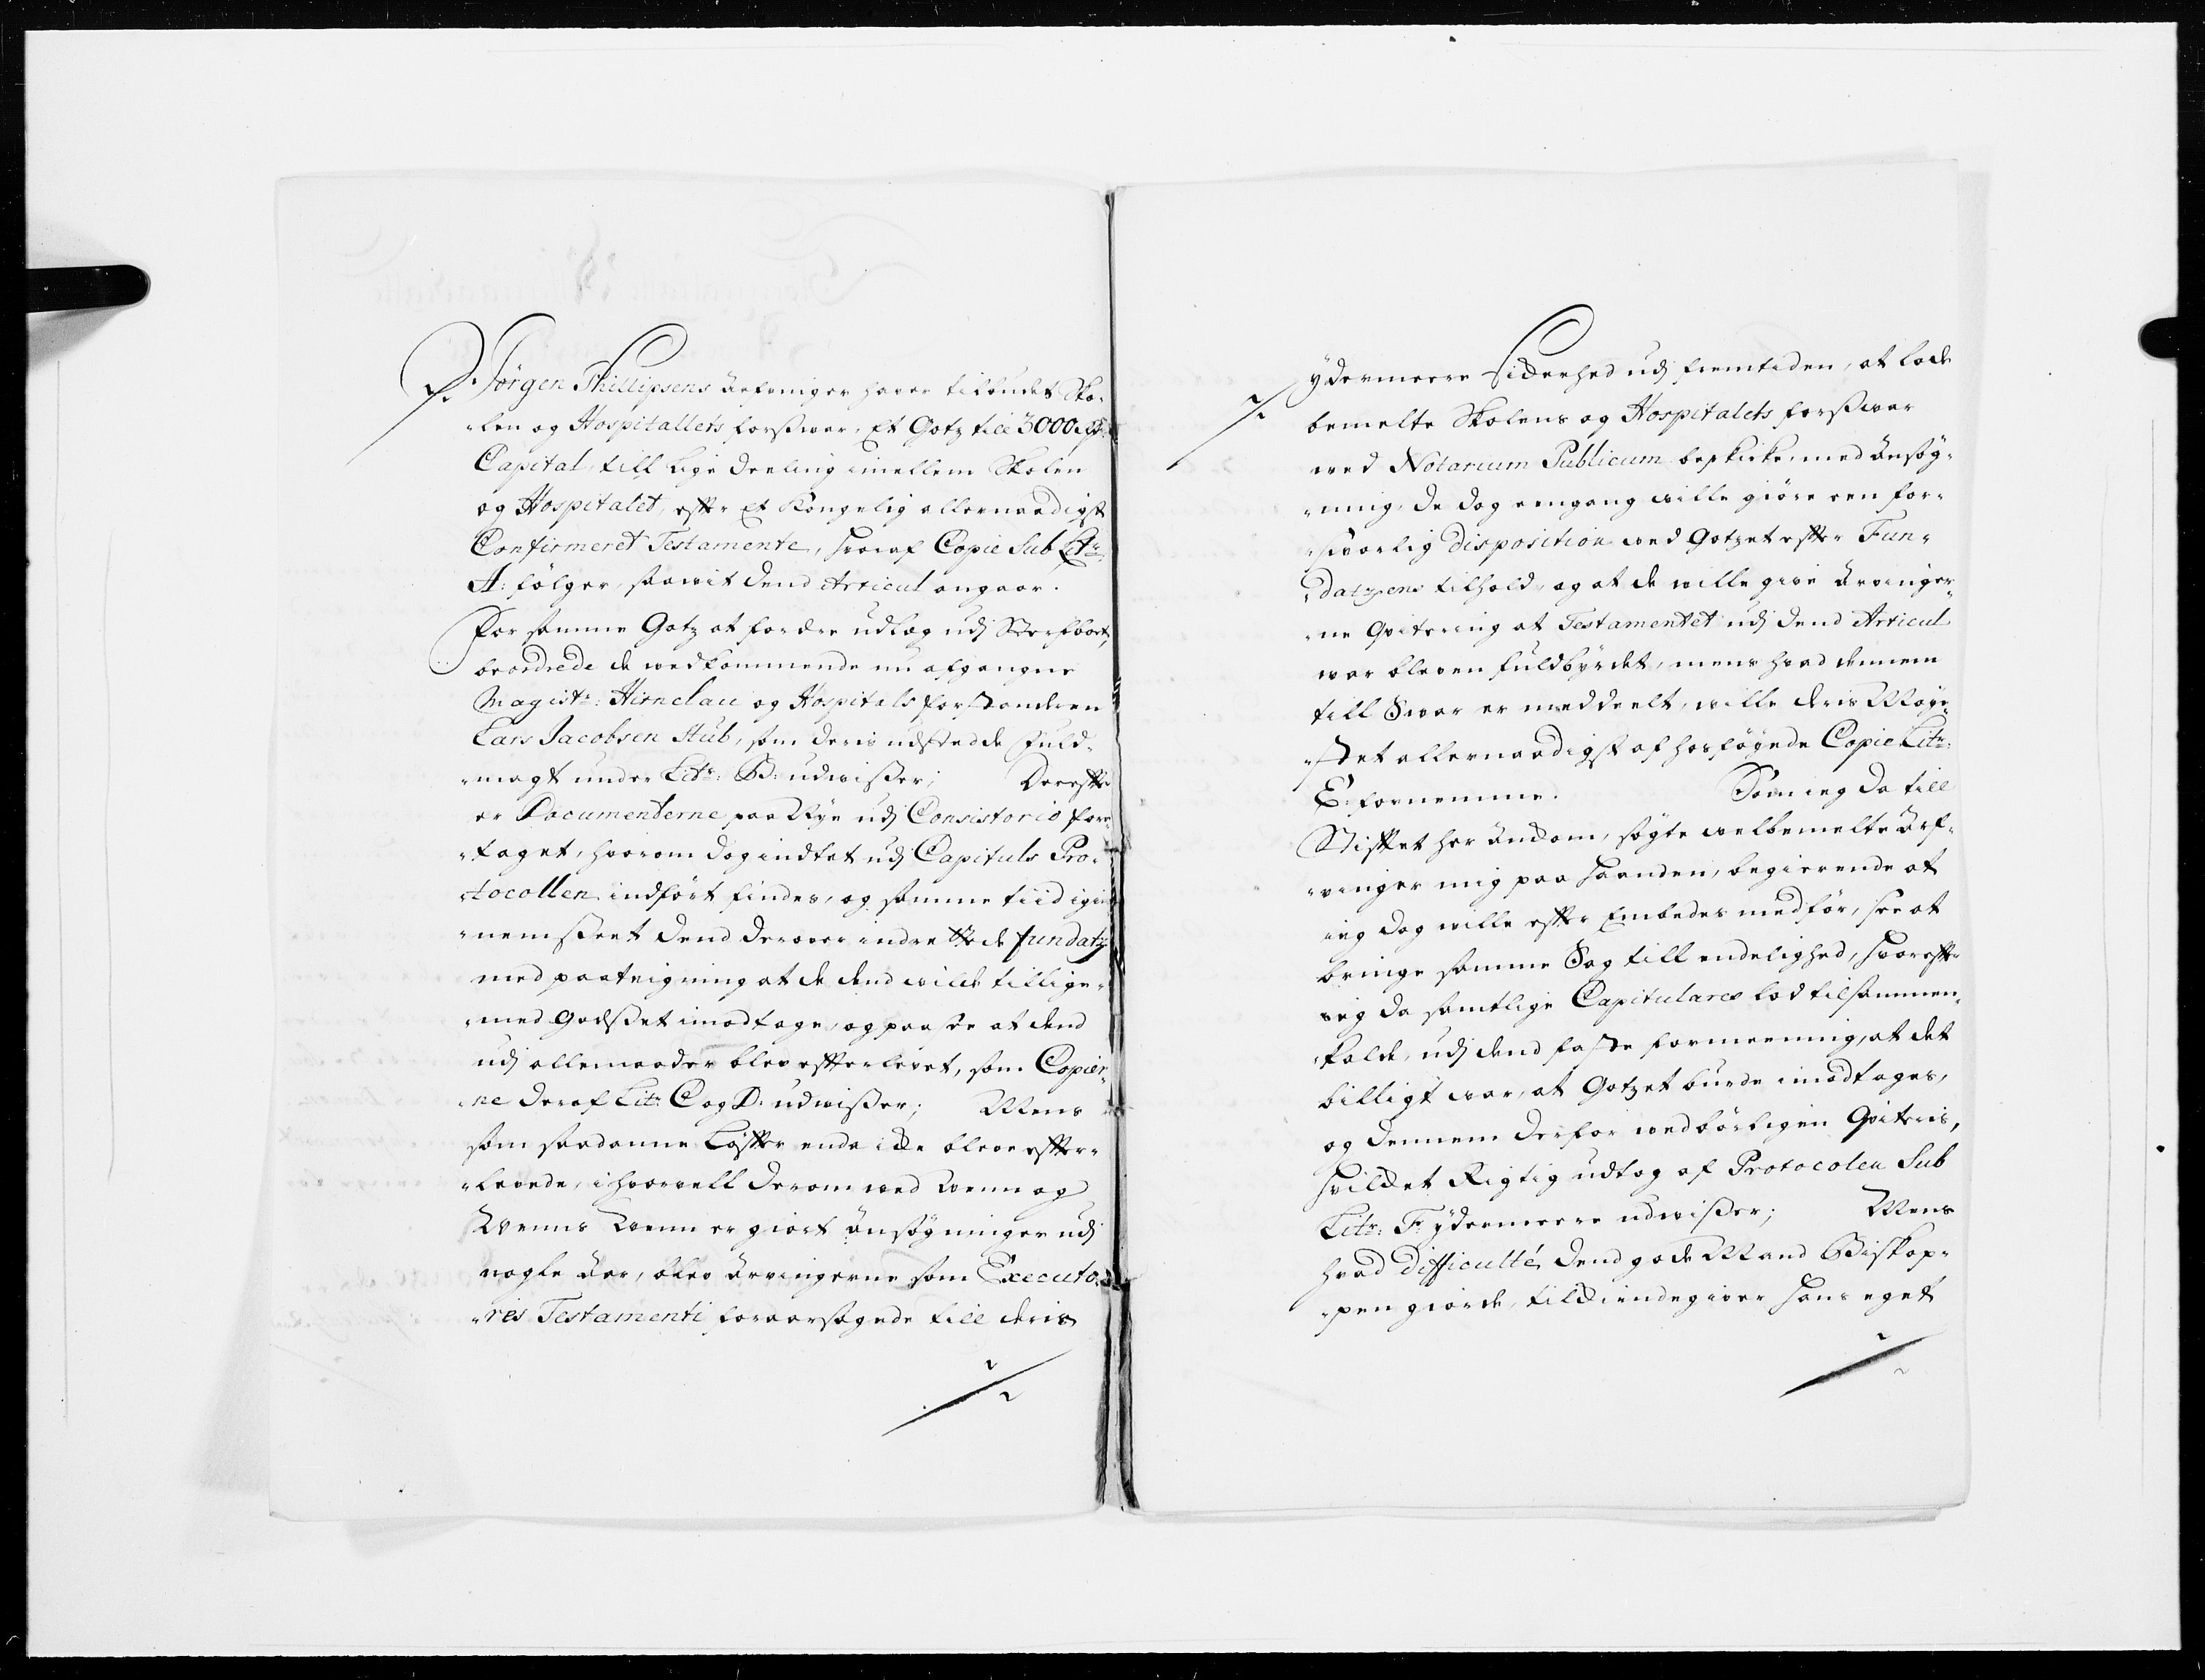 S. Jörgen Phillipsens Arfvinger haver tilbudet Sko-
-len og Hospitallets forsvar, Et Gotz till 3000 rdr
Capital, till lige deeling imellem Skolen
og Hospitalet, efter Et Kongelig allernaadigst
Confirmeret Testamente, hvoraf Copie Sub Litr:
A: fölger, saavit dend Articul angaar.
For samme Gotz at fordre udlæg udj Sterfboet,
beordrede de wedkommende nu afgangne
Magistr: Hirnclau og Hospitals forstanderen
Lars Jacobsen Stub, som deris udstedde Fuld-
-magt under Litr: B: udwisser; Derefter
er Documenterne paa Nye udj Consistorio fore-
-taget, hvorom dog indtet udj Capituls Pro-
-tocollen indfört findes, og samme tiid igien-
-nemseet dend derover indrettede fundatz
med paateigning at de dend wilde tillige-
-med Godsset imodtage, og paasee at dend
udj allemaader blev efterlevet, som Copier-
-ne deraf Litr: C og D: udwisser; Mens
som saadanne Löfter enda icke bleve efter-
-levede, ihvorvell derom ved Wenn og
Wenns Wenn er giort Ansögninger udj
nogle Aar, blev Arvingerne som Executo-
-res Testamenti foraarsagede till deris
ydermeere Sickerhed udj fremtiden, at lade
bemelte Skolens og Hospitalets forsvar
med Notarium Publicum beskicke, med Ansög-
-ning, de dog eengang wille giöre een for-
-svarlig disposition med Gotzet efter Fun-
-datzens tilhold, og at de wille give Arvinger-
-ne Qvitering at Testamentet udj dend Articul
war bleven fuldbyrdet, mens hvad dennem
till Svar er meddeelt, wille deris Maye-
-stet allernaadigst af hosföyede Copie Litr:
E: fornemme. Som ieg da till
Stiftet her ankom, sögte welbemelte Arf-
-vinger mig paa Haanden, begierende at
ieg dog wille efter Embedes medför, see at
bringe samme Sag till endelighed, hvorefter
ieg da samtlige Capitulares lod tilsammen-
-kalde, udj dend faste formeening, at det
billigt war, at Gotzet burde imodtages,
og dennem derfor wedbörligen Qviteris,
hvilket Rigtig udtog af Protocolen Sub
Litr: F: ydermeere udwisser; Mens
hvad difficulté dend gode Mand Biskop-
-pen giorde, tilkiendegiver hans eget